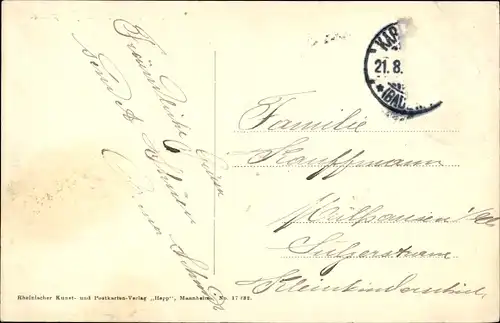 Freundliche Grüsse
sendet Ihnen
KAR
21.8.
(BAD
Familie
Kauffmann
Mülhausen i/Els
Sulzerstrasse
Kleinkinderschule
Rheinischer Kunst- und Postkarten-Verlag „Happ", Mannheim. No. 17